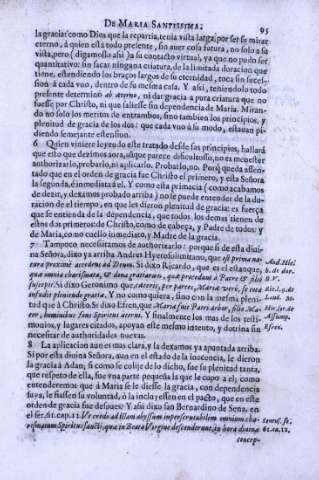 DE MARIA SANTISSIMA. 95
la gracia: como Dios que la repartia, tenia vista larga, por ser se mirar
eterno, à quien està todo presente, sin auer cosa futura, no solo a su
vista, pero (digamoslo assi) a su contacto virtual, ya que no pudo ser
quantitatiuo: sin sacar ninguna criatura, de la limitada duracion que
tiene, estendiendo los braços largos de su eternidad, toca sin succes-
sion à cada vno, dentro de su mesma casa. Y assi, teniendolo todo
presente determinò ab æterno, ni dar gracia a pura criatura que no
fuesse por Christo, ni que saliesse sin dependencia de Maria. Miran-
do no solo los meritos de entrambos, sino tambien los principios, y
plenitud de gracia de los dos: que cada vno à su modo, estauan pi-
diendo semejante estension.
6 Quien viniere leyendo este tratado desde sus principios, hallarà
que esto que dezimos aora, aunque parece dificultoso, no es menester
authorizarlo, probarlo, ni aplicarlo. Probarlo, no. Porq̃ queda assen-
tado que en el orden de gracia fue Christo el primero, y esta Señora
la segunda, è inmediata à el. Y como esta primacia (como acabamos
de dezir, y dexamos probado arriba) no le puede entender de la du-
racion de el tiempo, en que les dieron plenitud de gracia: es fuerça
que se entienda de la dependencia, que todos los demas tienen de
estos dos primeros: de Christo, como de cabeça, y Padre de todos: y
de Maria, como cuello inmediato, y Madre de la gracia.
7 Tampoco necessitamos de authorizarlo: porque si de esta diui-
na Señora, dixo ya arriba Andres Hyerosolimitano, que est prima na-
tura proximè accedens ad Deum. Si dixo Ricardo, que es el estanque,
qua omnia charismata, & dona gratiarum, quæ procedunt à Patre & filio
suscepit. Si dixo Geronimo que, cæteris, per partes, Mariæ verò, se tota
infudit plenitudo gratiæ. Y no como quiera, sino con la mesma pleni-
tud que à Christo. Si dixo Efren, que Maria fuit Patri arbor, filio Ma-
ter, hominibus fons Spiritus æterni. Y finalmente los mas de los testi-
monios, y lugares citados, apoyan este mesmo intento, y dotrina sin
necessitar de authoridades nueuas.
And. Hie.
B. V.
Assump.
Efren.
8 La aplicacion aun es mas clara, y la dexamos ya apuntada arriba.
Si por esta diuina Señora, aun en el estado de la inocencia, le dieron
la gracia à Adan, si como se colije de lo dicho, fue su plenitud tanta,
que respeto de ella, fue vna parte pequeña la que le cupo a el; como
entenderemos que à Maria se le diesse la gracia, con dependencia
suya, le fiassen su voluntad, ò la incluyessen en el pacto, que en este
orden de gracia fue despues? Y assi dixo san Bernardino de Sena, en
el ser. 61. cap. 11. Vt credo ad Illam abyssum imperscrutabilem omnium cha-
rismatum Spiritus sancti, quæ in Beatã Virginẽ descenderunt, in hora diuinæ
61. ca. 12.
concep-